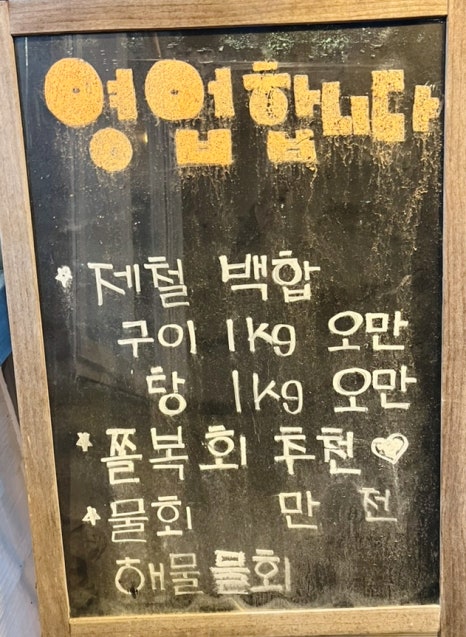 영업합니다
* 제철 백합
구이 1kg 오만
탕 1kg 오만
* 쫄복회 추천 ♡
* 물회 만 전
해물물회